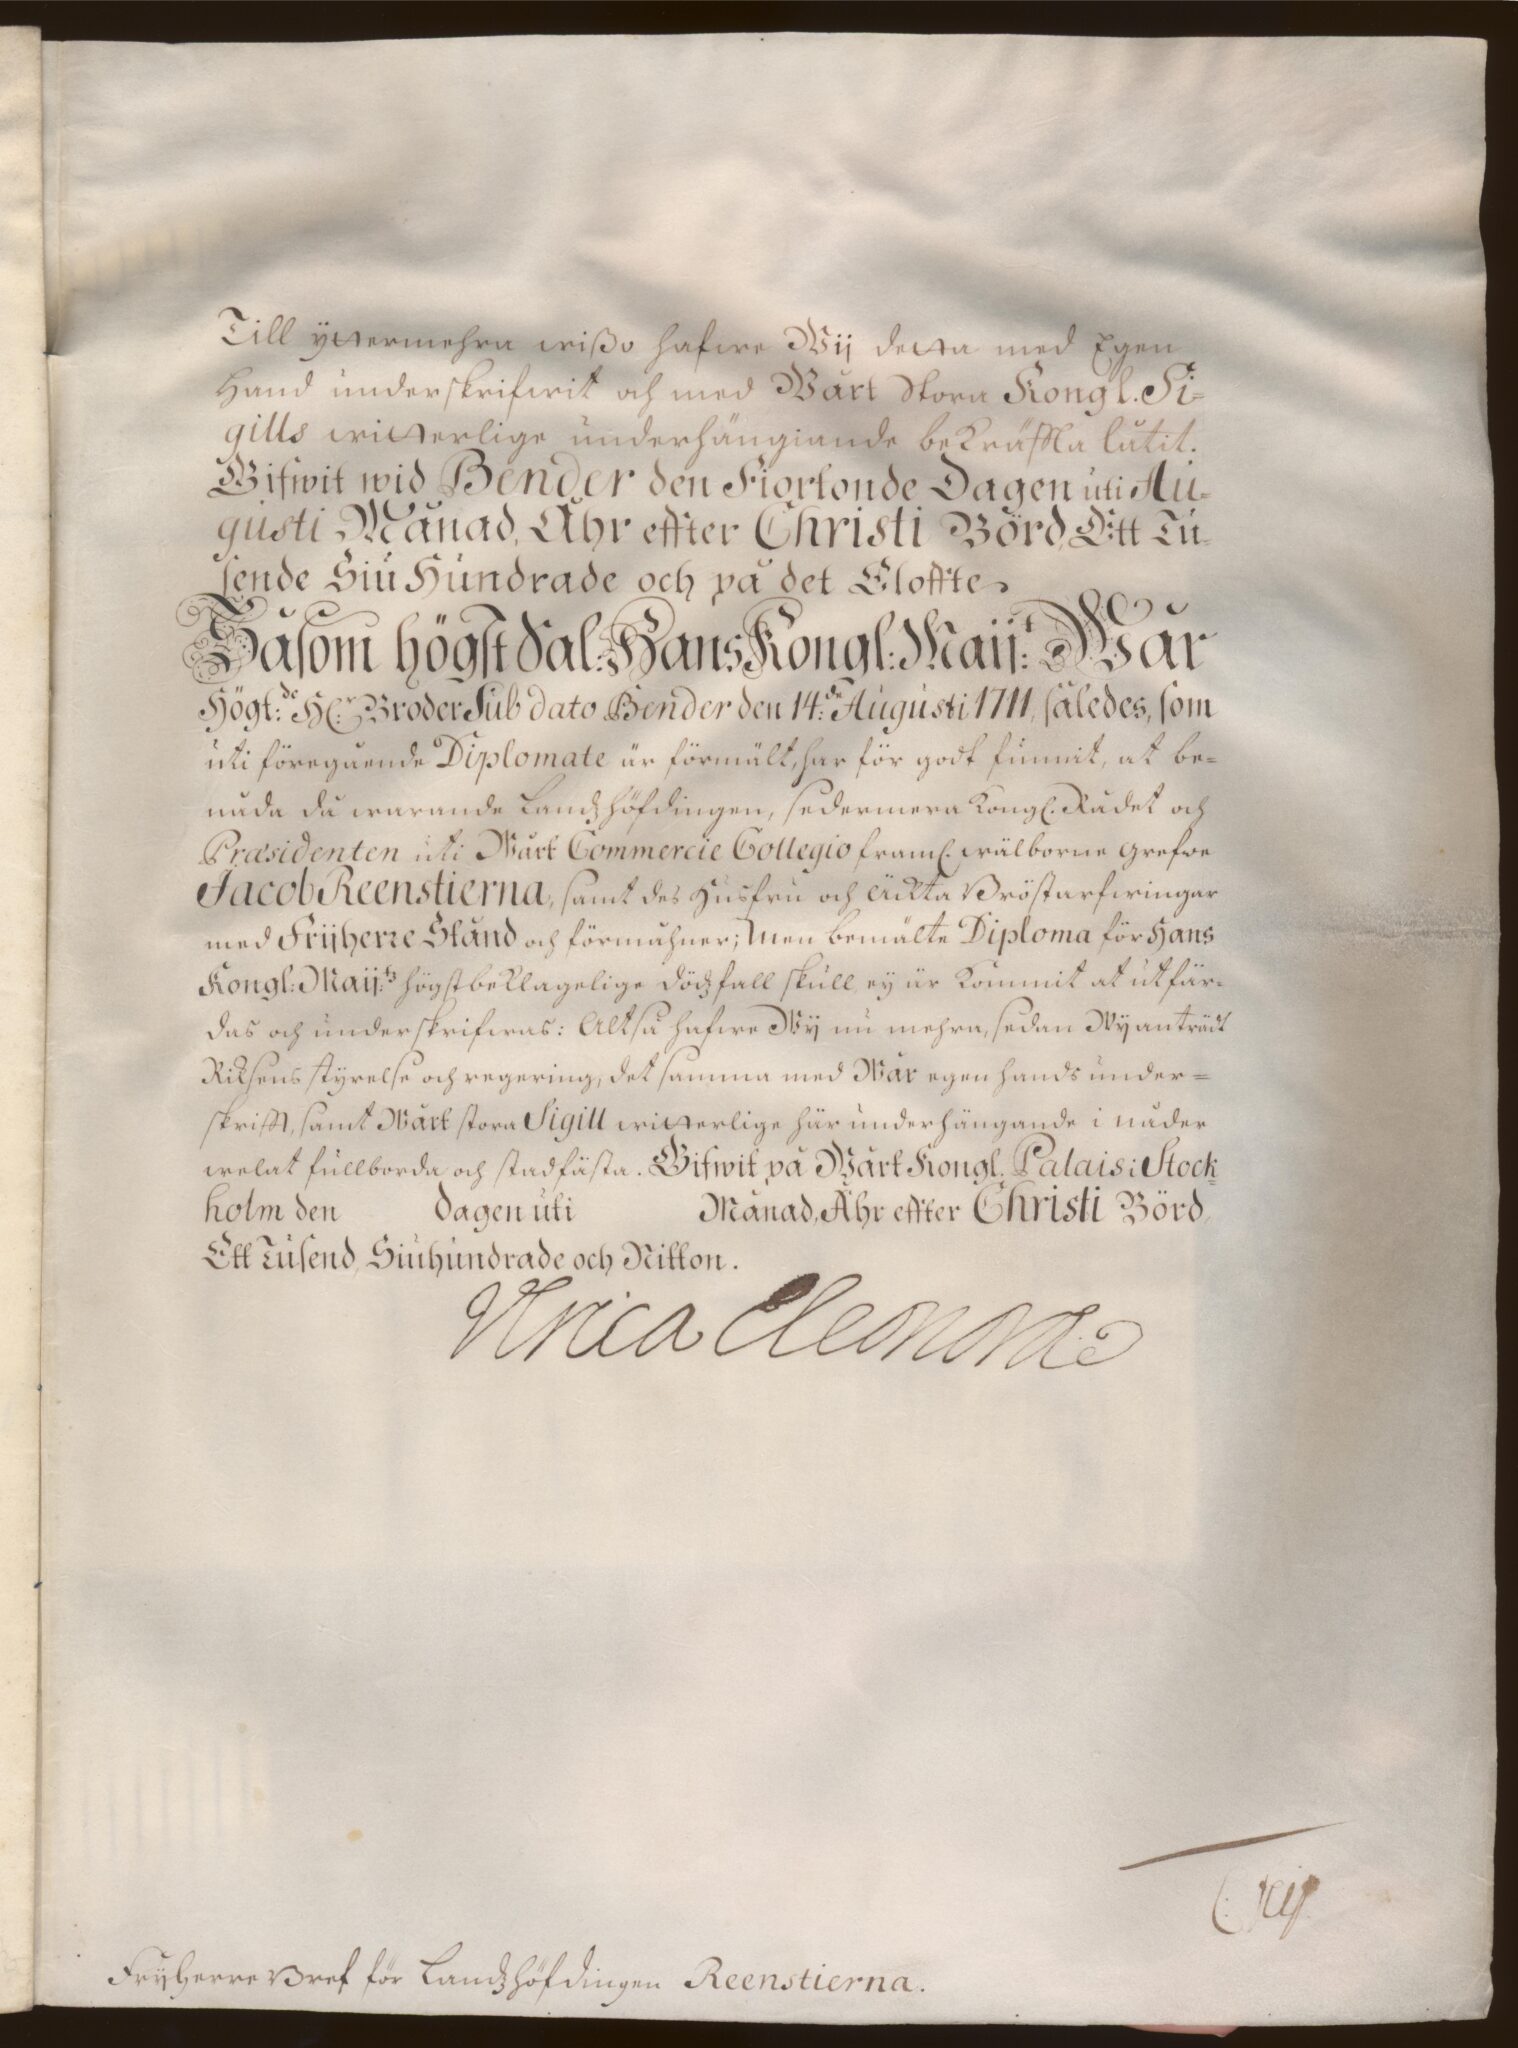 Till yttermehra wißo hafwe Wij detta med Egen
Hand underskrifwit och med Wårt Stora Kongl. Si-
gills witterlige underhängiande bekräfta låtit.
Gifwit wid Bender den Fiortonde Dagen uti Au-
gusti Månad, Åhr effter Christi Börd, Ett Tu-
sende Siu Hundrade och på det Eloffte.
Såsom högst Sal: Hans Kongl: Maij:t Wår
Högt:de H:r Broder Sub dato Bender den 14:de Augusti 1711, således, som
uti föregående Diplomate är förmält, har för godt funnit, at be-
nåda då warande Landzhöfdingen, sedermera Kongl. Rådet och
Præsidenten uti Wårt Commercie Collegio framl. wälborne Grefwe
Jacob Reenstierna, samt des Husfru och Äckta Bröstarfwingar
med Frijherre Stånd och förmåhner; Men bemälte Diploma för Hans
Kongl: Maij:tz högstbeklagelige dödzfall skull, ey är kommit at utfär-
das och underskrifwas: Altså hafwe Wij nu mehra, sedan Wy anträdt
Riksens styrelse och regering, det samma med Wår egen hands under-
skrifft, samt Wårt stora Sigill witterlige här underhängande i nåder
welat fullborda och stadfästa. Gifwit på Wårt Kongl. Palais i Stock-
holm den dagen uti Månad, Åhr effter Christi Börd,
Ett Tusend, Siuhundrade och Nitton.
Ulrica Eleonora
Fryherre Bref för Landzhöfdingen Reenstierna.